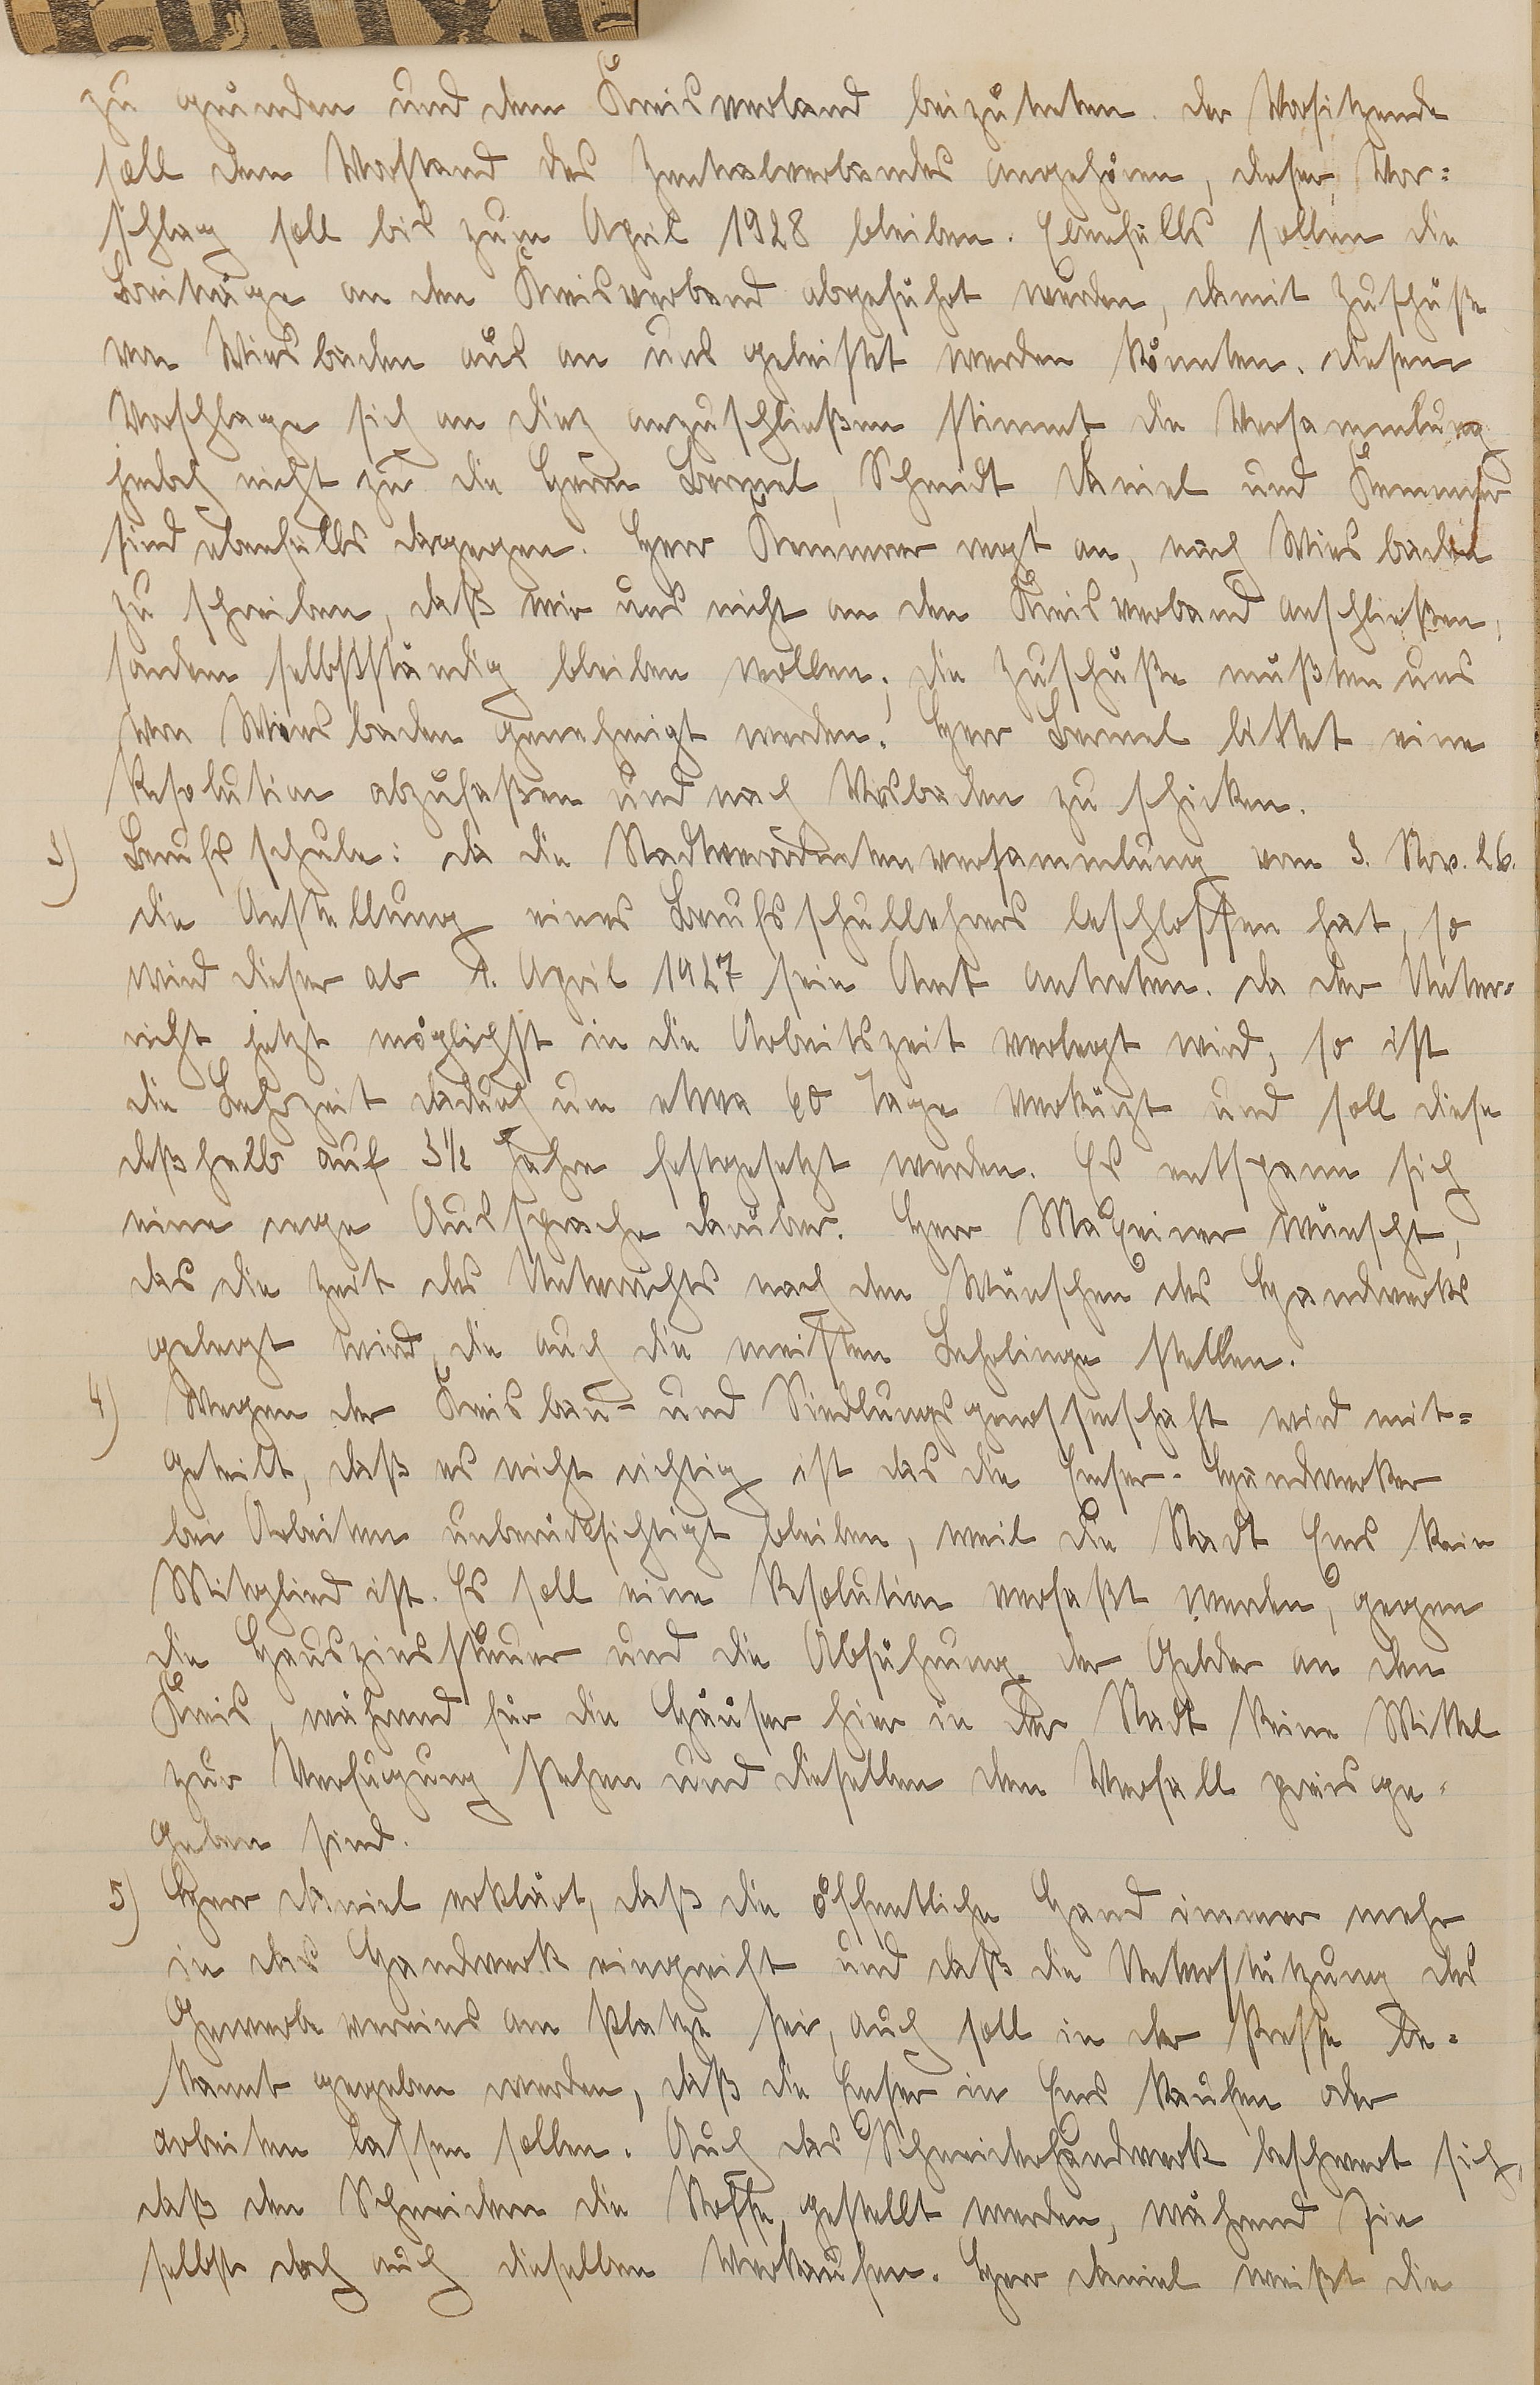 zu grunden und dem Kreisverband beizutreten. Der Vorsitzende
soll dem Vorstand des Zentralverbandes angehören, dieser Vor=
schlag soll bis zum April 1928 bleiben. Ebenfalls sollen die
Beiträge an den Kreisverband abgeführt werden, damit Zuschüße
von Wiesbaden aus an uns geleistet werden könnten. Diesem
Vorschlage sich an Diez anzuschließen stimmt die Versammlung
jedoch nicht zu die Herrn Bermel, Schmidt, Daniel und Kemmer
sind ebenfalls dagegen. Herr Kemmer regt an, nach Wiesbaden
zu schreiben, daß wir uns nicht an den Kreisverband anschließen,
sondern selbstständig bleiben wollen, die Zuschüße müßten uns
von Wiesbaden genehmigt werden. Herr Bermel bittet eine
Resolution abzufaßen und nach Wisbaden zu schicken.
3) Berufsschule: Da die Stadtverordnetenversammlung vom 3. Nov. 26.
die Anstellung eines Berufsschullehrers beschlossen hat, so
wird dieser ab 1. April 1927 sein Amt antreten. Da der Unter=
richt jetzt möglichst in die Arbeitszeit verlegt wird, so ist
die Lehrzeit dadurch um etwa 60 Tage verkürzt und soll diese
deßhalb auf 3½ Jahre festgesetzt werden. Es entspann sich
eine rege Aussprache darüber. Herr Maxeiner wünscht,
das die Zeit des Unterrichts nach den Wünschen des Handwerks
gelegt wird, die auch die meisten Lehrlinge stellen.
4) Wegen der Kreisbau- und Siedlungsgenossenschaft wird mit=
geteilt, daß es nicht richtig ist das die Emser-Handwerker
bei Arbeiten unberücksichtigt bleiben, weil die Stadt Ems kein
Mitglied ist. Es soll eine Resolution verfaßt werden, gegen
die Hauszinssteuer und die Abführung der Gelder an den
Kreis, während für die Häuser hier in der Stadt keine Mittel
zur Verfügung stehen und dieselben dem Verfall preisge=
geben sind.
5) Herr Daniel erklärt, daß die öffentliche Hand immer mehr
in das Handwerk eingreift und daß die Unterstützung des
Gewerbevereins am Platze sei, auch soll in der Presse be=
kannt gegeben werden, daß die Emser in Ems kaufen oder
arbeiten lassen sollen. Auch das Schneiderhandwerk beschwert sich,
daß den Schneidern die Stoffe gestellt werden, während sie
selbst doch auch dieselben verkaufen. Herr Daniel weißt die